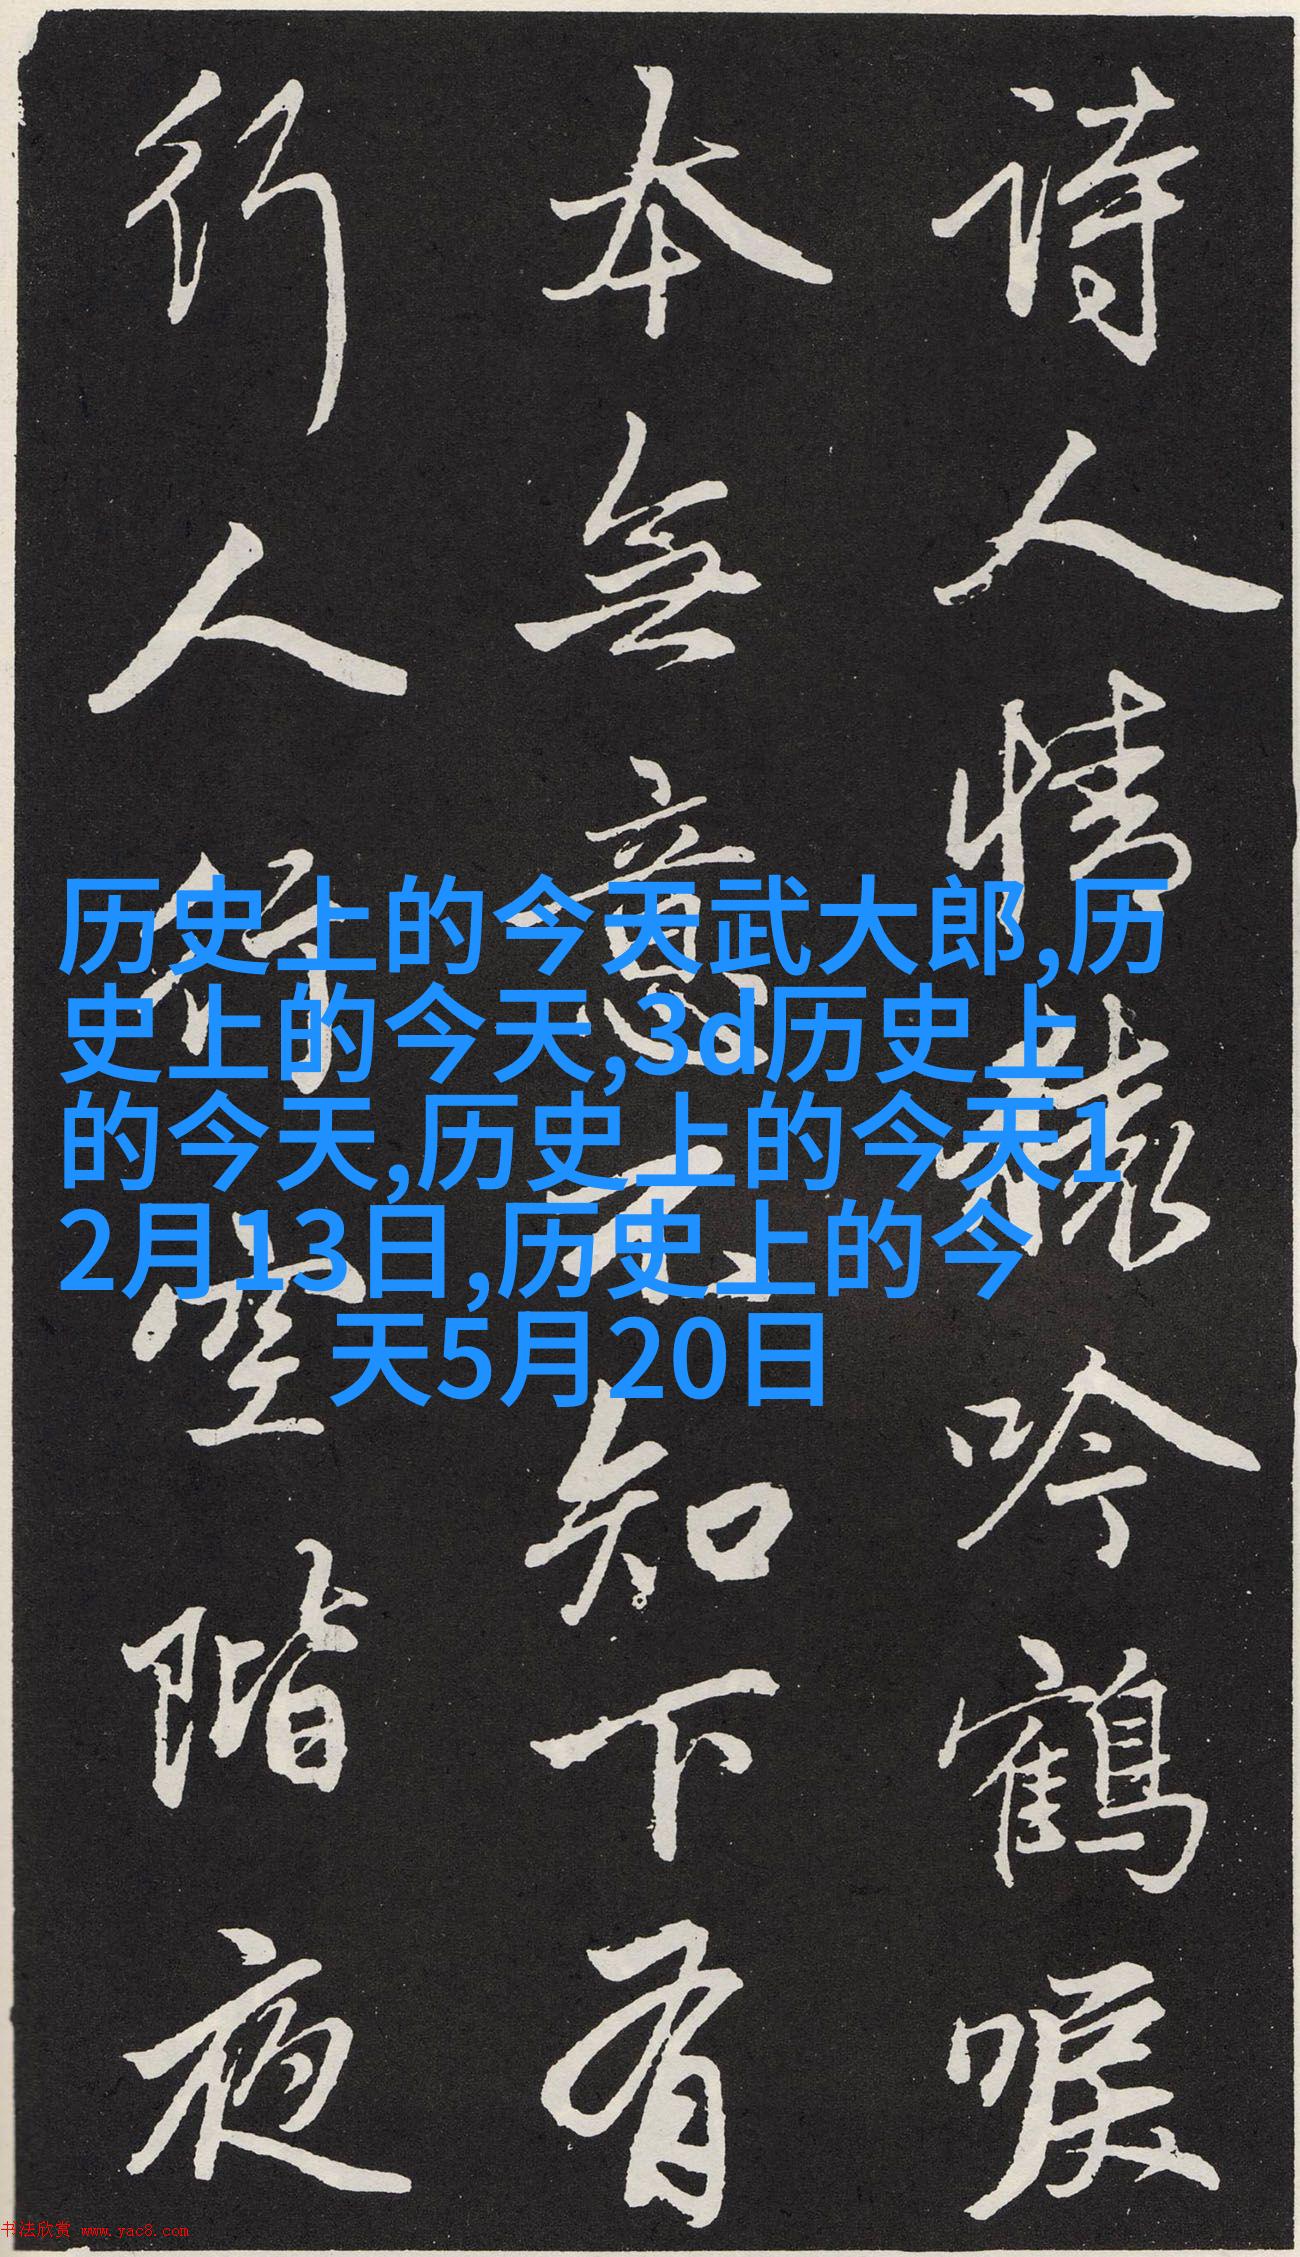 詩人情猿吟鶴唳
本無意不知下有
行人行空階夜
历史上的今天武大郎,历
史上的今天,3d历史上
的今天,历史上的今天1
2月13日,历史上的今
天5月20日
书法欣赏 www.yac8.com